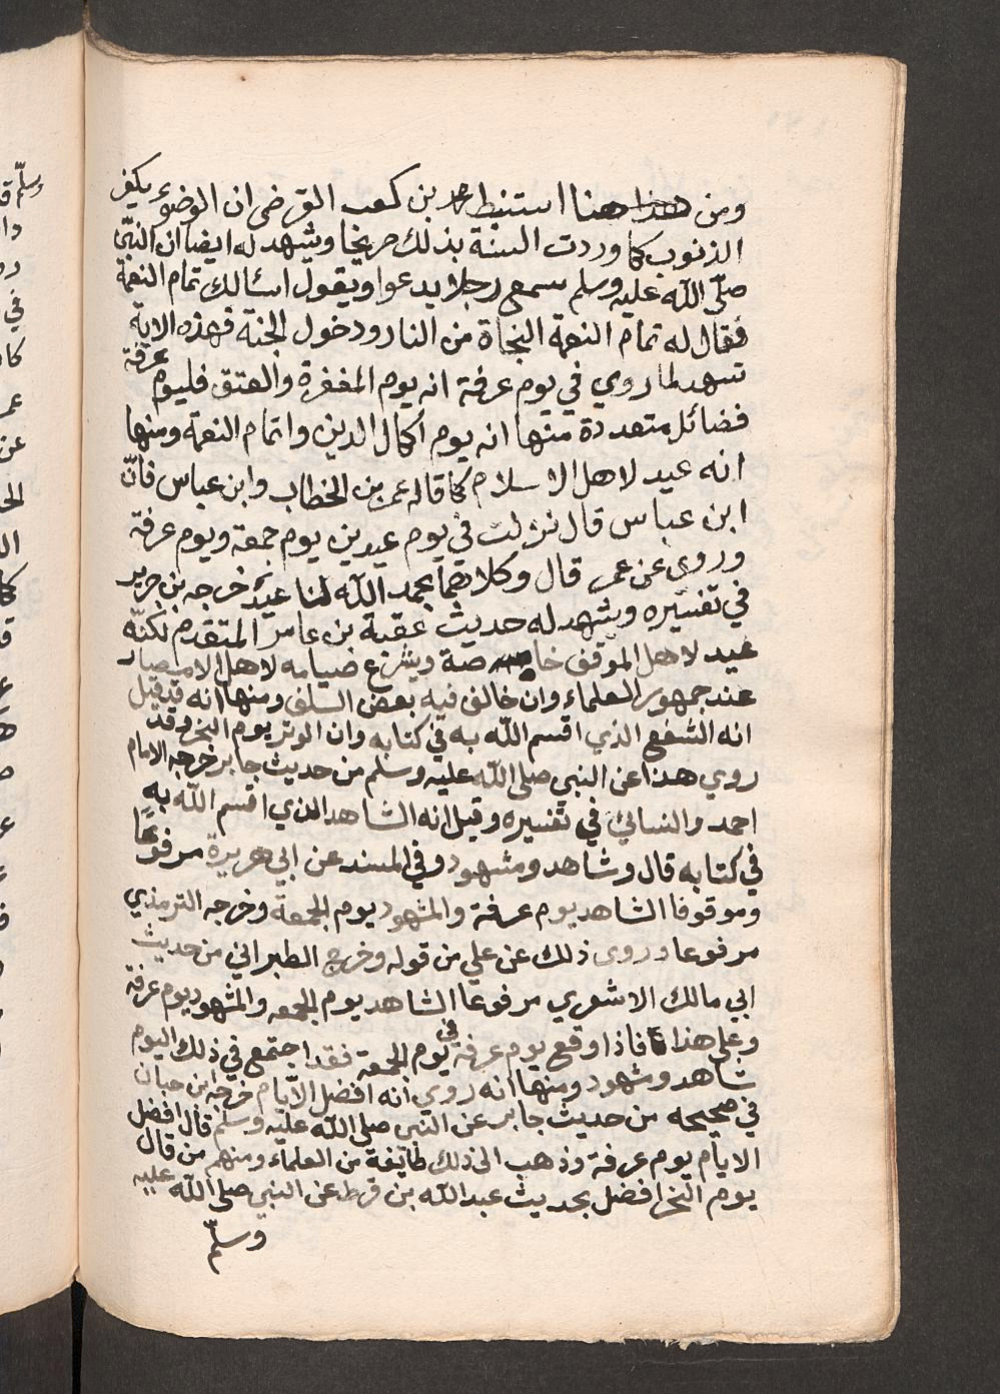 ومن هذا هنا استنبط محمد بن كعب القرضي ان الوضوء يكفر
الذنوب كما وردت السنة بذلك صريحا ويشهد له ايضا ان النبّي
صلّى اللّه عليه وسلم سمع رجلا يدعوا ويقول اسئالك تمام النعمة
فقال له تمام النعمة النجاة من النار ودخول الجنة فهذه الاية
تشهد لما روي في يوم عرفة انه يوم المغفرة والعتق فليوم عرفة
فضائل متعددة منها انه يوم اكمال الدين واتمام النعمة ومنها
انه عيد لاهل الاسلام كما قاله عمر بن الخطاب وابن عباس فانّ
ابن عباس قال نزلت في يوم عيدين يوم جمعة ويوم عرفة
وروي عن عمر قال وكلاهما بحمد اللّه لنا عيد خرجه بن جرير
في تفسيره ويشهد له حديث عقبة بن عامر المتقدم لكنّه
عيد لاهل الموقف خاصة ويشرع صيامه لاهل الامصار
عند جمهور العلماء وان خالف فيه بعض السلف ومنها انه قد قيل
انه الشفع الذي اقسم اللّه به في كتابه وان الوتر يوم النحر وقد
روي هذا عن النبي صلى اللّه عليه وسلم من حديث جابر خرجه الامام
احمد والنسائي في تفسيره وقيل انه الشاهد الذي اقسم اللّه به
في كتابه قال وشاهد ومشهود وفي المسند عن ابي هريرة مرفوعًا
وموقوفا الشاهد يوم عرفة والمشهود يوم الجمعة وخرجه الترمذي
مرفوعا وروى ذلك عن علي من قوله وخرج الطبراني من حديث
ابي مالك الاشعري مرفوعا الشاهد يوم الجمعه والمشهود يوم عرفة
وعلى هذا فاذا وقع يوم عرفة في يوم الجمعة فقد اجتمع في ذلك اليوم
شاهد وشهود ومنها انه روي انه افضل الايّام خرجه ابن حبان
في صحيحه من حديث جابر عن النبي صلى اللّه عليه وسلم قال افضل
الايام يوم عرفة وذهب الى ذلك طايفة من العلماء ومنهم من قال
يوم النحر افضل بحديث عبد اللّه بن قرط عن النبي صلى اللّه عليه
وسلّم